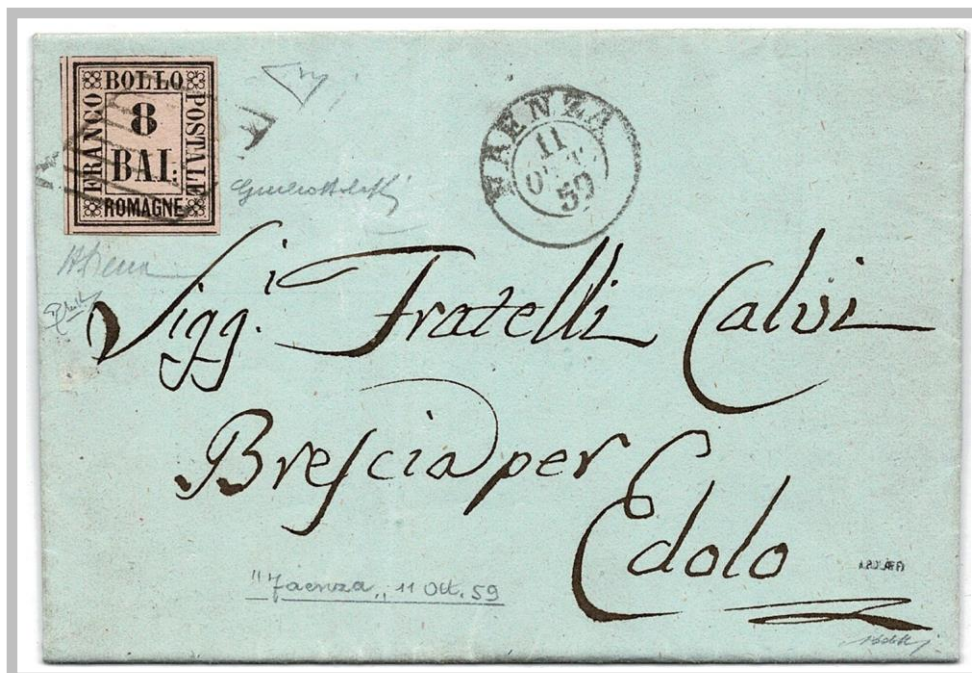 BOLLO
FRANCO
8
BAI:
POSTALE
ROMAGNE
FAENZA
11
OTT.
59
Sigg.i Fratelli Calvi
Brescia per
Edolo
"Faenza„ 11 Ott. 59